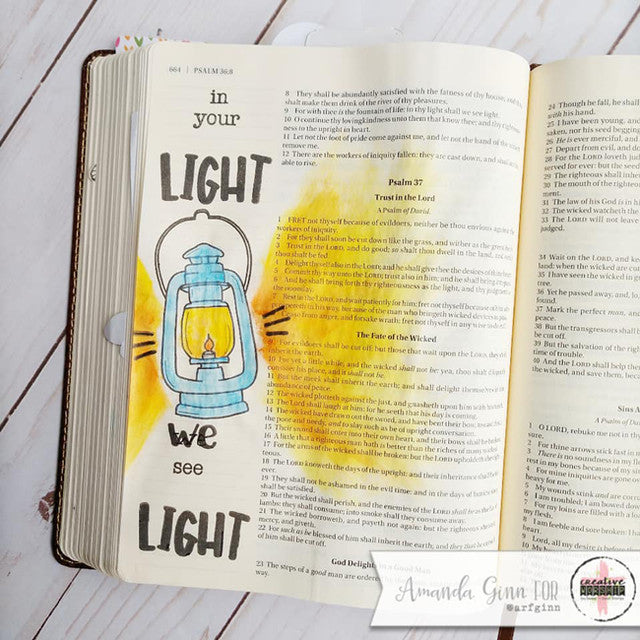 664 | PSALM 36:8
in
your
LIGHT
we
see
LIGHT
8 They shall be abundantly satisfied with the fatness of thy house; and
shalt make them drink of the river of thy pleasures.
9 For with thee is the fountain of life: in thy light shall we see light.
10 O continue thy lovingkindness unto them that know thee; and thy
ness to the upright in heart.
11 Let not the foot of pride come against me, and let not the hand of the
remove me.
12 There are the workers of iniquity fallen: they are cast down, and shall
able to rise.
Psalm 37
Trust in the Lord
A Psalm of David.
1 FRET not thyself because of evildoers, neither be thou envious against the
workers of iniquity.
2 For they shall soon be cut down like the grass, and wither as the green
3 Trust in the LORD, and do good; so shalt thou dwell in the land,
thou shalt be fed.
4 Delight thyself also in the LORD; and he shall give thee the desires of
5 Commit thy way unto the LORD; trust also in him; and he shall bring
6 And he shall bring forth thy righteousness as the light, and thy judgment
the noonday.
7 Rest in the LORD, and wait patiently for him: fret not thyself because
in his way, because of the man who bringeth wicked devices
from anger, and forsake wrath: fret not thyself in any wise
The Fate of the Wicked
9 For evildoers shall be cut off: but those that wait upon the LORD, they
inherit the earth.
10 For yet a little while, and the wicked shall not be: yea, thou shalt
consider his place, and it shall not be.
11 But the meek shall inherit the earth; and shall delight themselves in the
abundance of peace.
12 The wicked plotteth against the just, and gnasheth upon him with
13 The Lord shall laugh at him: for he seeth that his day is coming.
14 The wicked have drawn out the sword, and have bent their bow, to cast
the poor and needy, and to slay such as be of upright conversation.
15 Their sword shall enter into their own heart, and their bows shall be
16 A little that a righteous man hath is better than the riches of many
17 For the arms of the wicked shall be broken: but the LORD upholdeth the
teous.
18 The LORD knoweth the days of the upright: and their inheritance shall
ever.
19 They shall not be ashamed in the evil time: and in the days of
shall be satisfied.
20 But the wicked shall perish, and the enemies of the LORD shall be as the
lambs: they shall consume; into smoke shall they consume away.
21 The wicked borroweth, and payeth not again: but the righteous
mercy, and giveth.
22 For such as be blessed of him shall inherit the earth; and they that be
of him shall be cut off.
God Delights in a Good Man
23 The steps of a good man are ordered
way.
24 Though he fall, he shall
with his hand.
25 I have been young, and
saken, nor his seed begging
26 He is ever merciful, and
27 Depart from evil, and do
28 For the LORD loveth
served for ever: but the seed
29 The righteous shall inherit
30 The mouth of the
ment.
31 The law of his God is in
32 The wicked watcheth the
33 The LORD will not leave
judged.
34 Wait on the LORD, and
land: when the wicked are cut
35 I have seen the wicked in
tree.
36 Yet he passed away, and,
found.
37 Mark the perfect man, and
peace.
38 But the transgressors shall
be cut off.
39 But the salvation of the
time of trouble.
40 And the LORD shall help
the wicked, and save them,
A Psalm of
1 O LORD, rebuke me not in
sure.
2 For thine arrows stick fast in
3 There is no soundness in my
rest in my bones because of my
4 For mine iniquities are gone
heavy for me.
5 My wounds stink and are
6 I am troubled; I am bowed down
7 For my loins are filled with a
my flesh.
8 I am feeble and sore broken: I
heart.
9 Lord, all my desire is before
Amanda Ginn FOR
@arfginn
creative